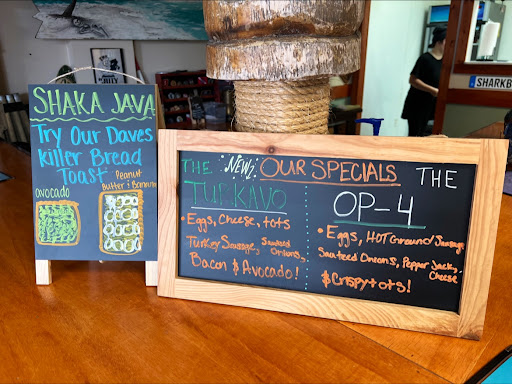 SHAKA JAVA
Try Our Daves
Killer Bread
Toast
Peanut
Butter & Banana
avocado
NEW! OUR SPECIALS
THE
TURKAVO
• Eggs, Cheese, tots
Turkey Sausage, Sauteed
Onions,
Bacon & Avocado!
THE
OP-4
• Eggs, HOT Ground Sausage
Sauteed Onions, Pepper Jack,
Cheese
& Crispy tots!
SHARKB